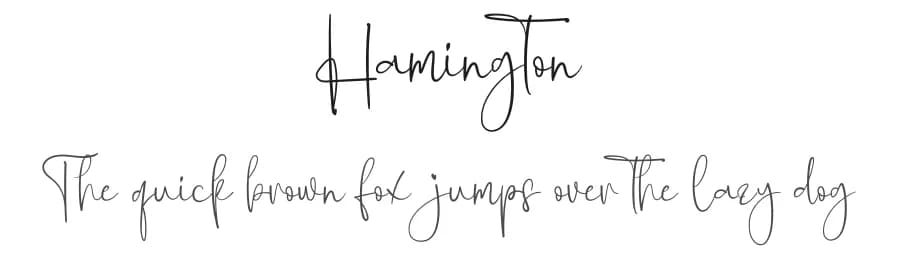 Hamington
The quick brown fox jumps over the lazy dog